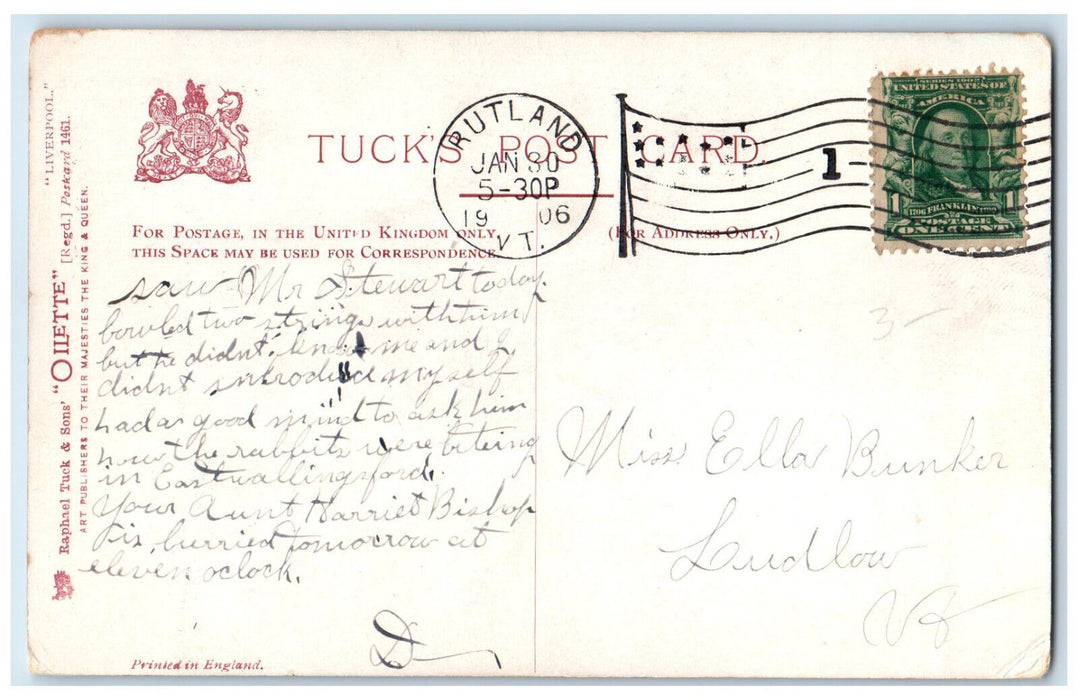 "LIVERPOOL."
Raphael Tuck & Sons' "OILETTE" [Regd.] Postcard 1461.
ART PUBLISHERS TO THEIR MAJESTIES THE KING & QUEEN.
TUCK'S POST CARD.
FOR POSTAGE, IN THE UNITED KINGDOM ONLY,
THIS SPACE MAY BE USED FOR CORRESPONDENCE.
(FOR ADDRESS ONLY.)
RUTLAND
JAN 30
5-30P
19 06
VT.
1
SERIES 1902
UNITED STATES OF
AMERICA
1 1
1706 FRANKLIN 1790
POSTAGE
ONE CENT
saw Mr Stewart today.
bowled two strings with him
but he didnt. know me and I
didnt introduce myself
had a good mind to ask him
how the rabbits were biteing
in East wallingsford.
Your Aunt Harriet Bishop
is, burried tomocrow at
eleven oclock.
D
3-
Miss Ella Bunker
Ludlow
Vt
Printed in England.